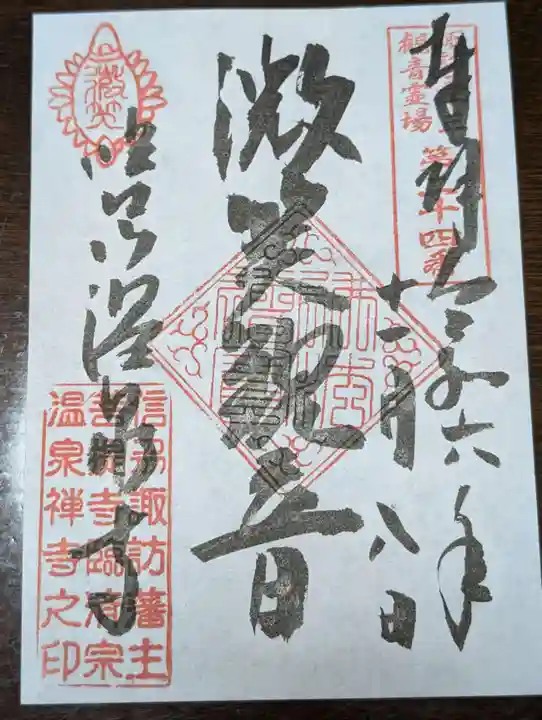 奉拝
令和六年
十一月八日
観音霊場
第十四番
微笑観音
微笑
温泉寺
信州諏訪藩主
菩提寺臨済宗
温泉禅寺之印